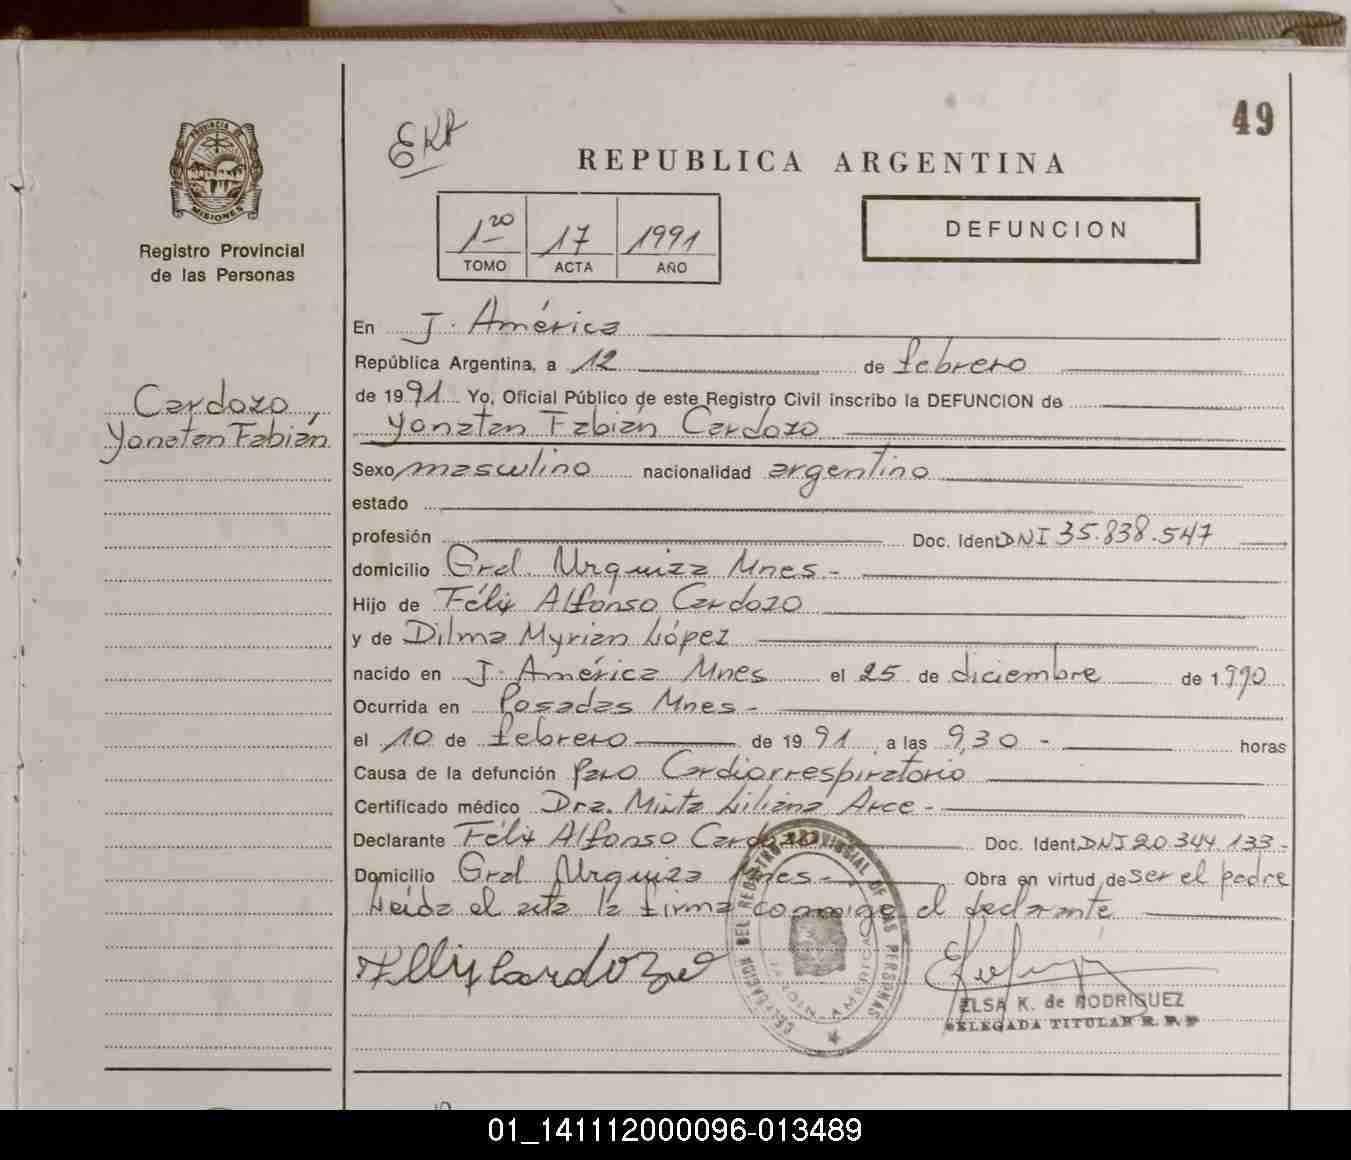 49
EKR
REPUBLICA ARGENTINA
PROVINCIA DE
MISIONES
Registro Provincial
de las Personas
1-20 17 1991
TOMO ACTA AÑO
DEFUNCION
En J. América
República Argentina, a 12 de febrero
de 1991 Yo, Oficial Público de este Registro Civil inscribo la DEFUNCION de
Cardozo,
Yonatan Fabián
Yonatan Fabián Cardozo
Sexo masculino nacionalidad argentino
estado
profesión Doc. Ident DNI 35.838.547
domicilio Gral. Urquiza Mnes -
Hijo de Félix Alfonso Cardozo
y de Dilma Myrian López
nacido en J. América Mnes el 25 de diciembre de 1.990
Ocurrida en Posadas Mnes -
el 10 de febrero de 1991 a las 9,30 - horas
Causa de la defunción Paro Cardiorrespiratorio
Certificado médico Dra. Mirta Liliana Arce -
Declarante Félix Alfonso Cardozo Doc. Ident. DNI 20.344.133 -
Domicilio Gral Urquiza Mnes - Obra en virtud de ser el padre
Leída el acta la firma conmigo el declarante
DELEGACION DEL REGISTRO PROVINCIAL DE LAS PERSONAS
JARDIN - AMERICA
ELSA K. de RODRIGUEZ
DELEGADA TITULAR R. P. P
01_141112000096-013489